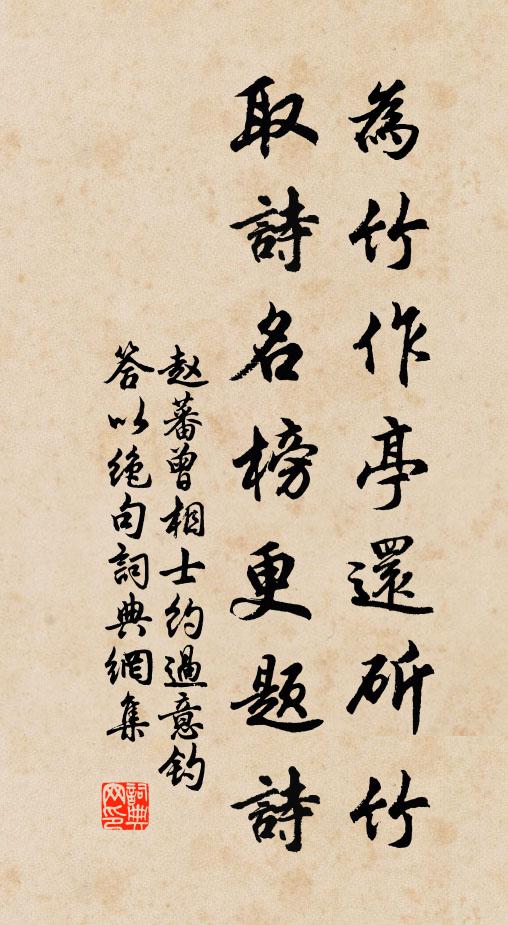 為竹作亭還斫竹
取詩名榜更题詩
赵蕃曾相士约過意钓
答以绝句詞典網集
詞典網印